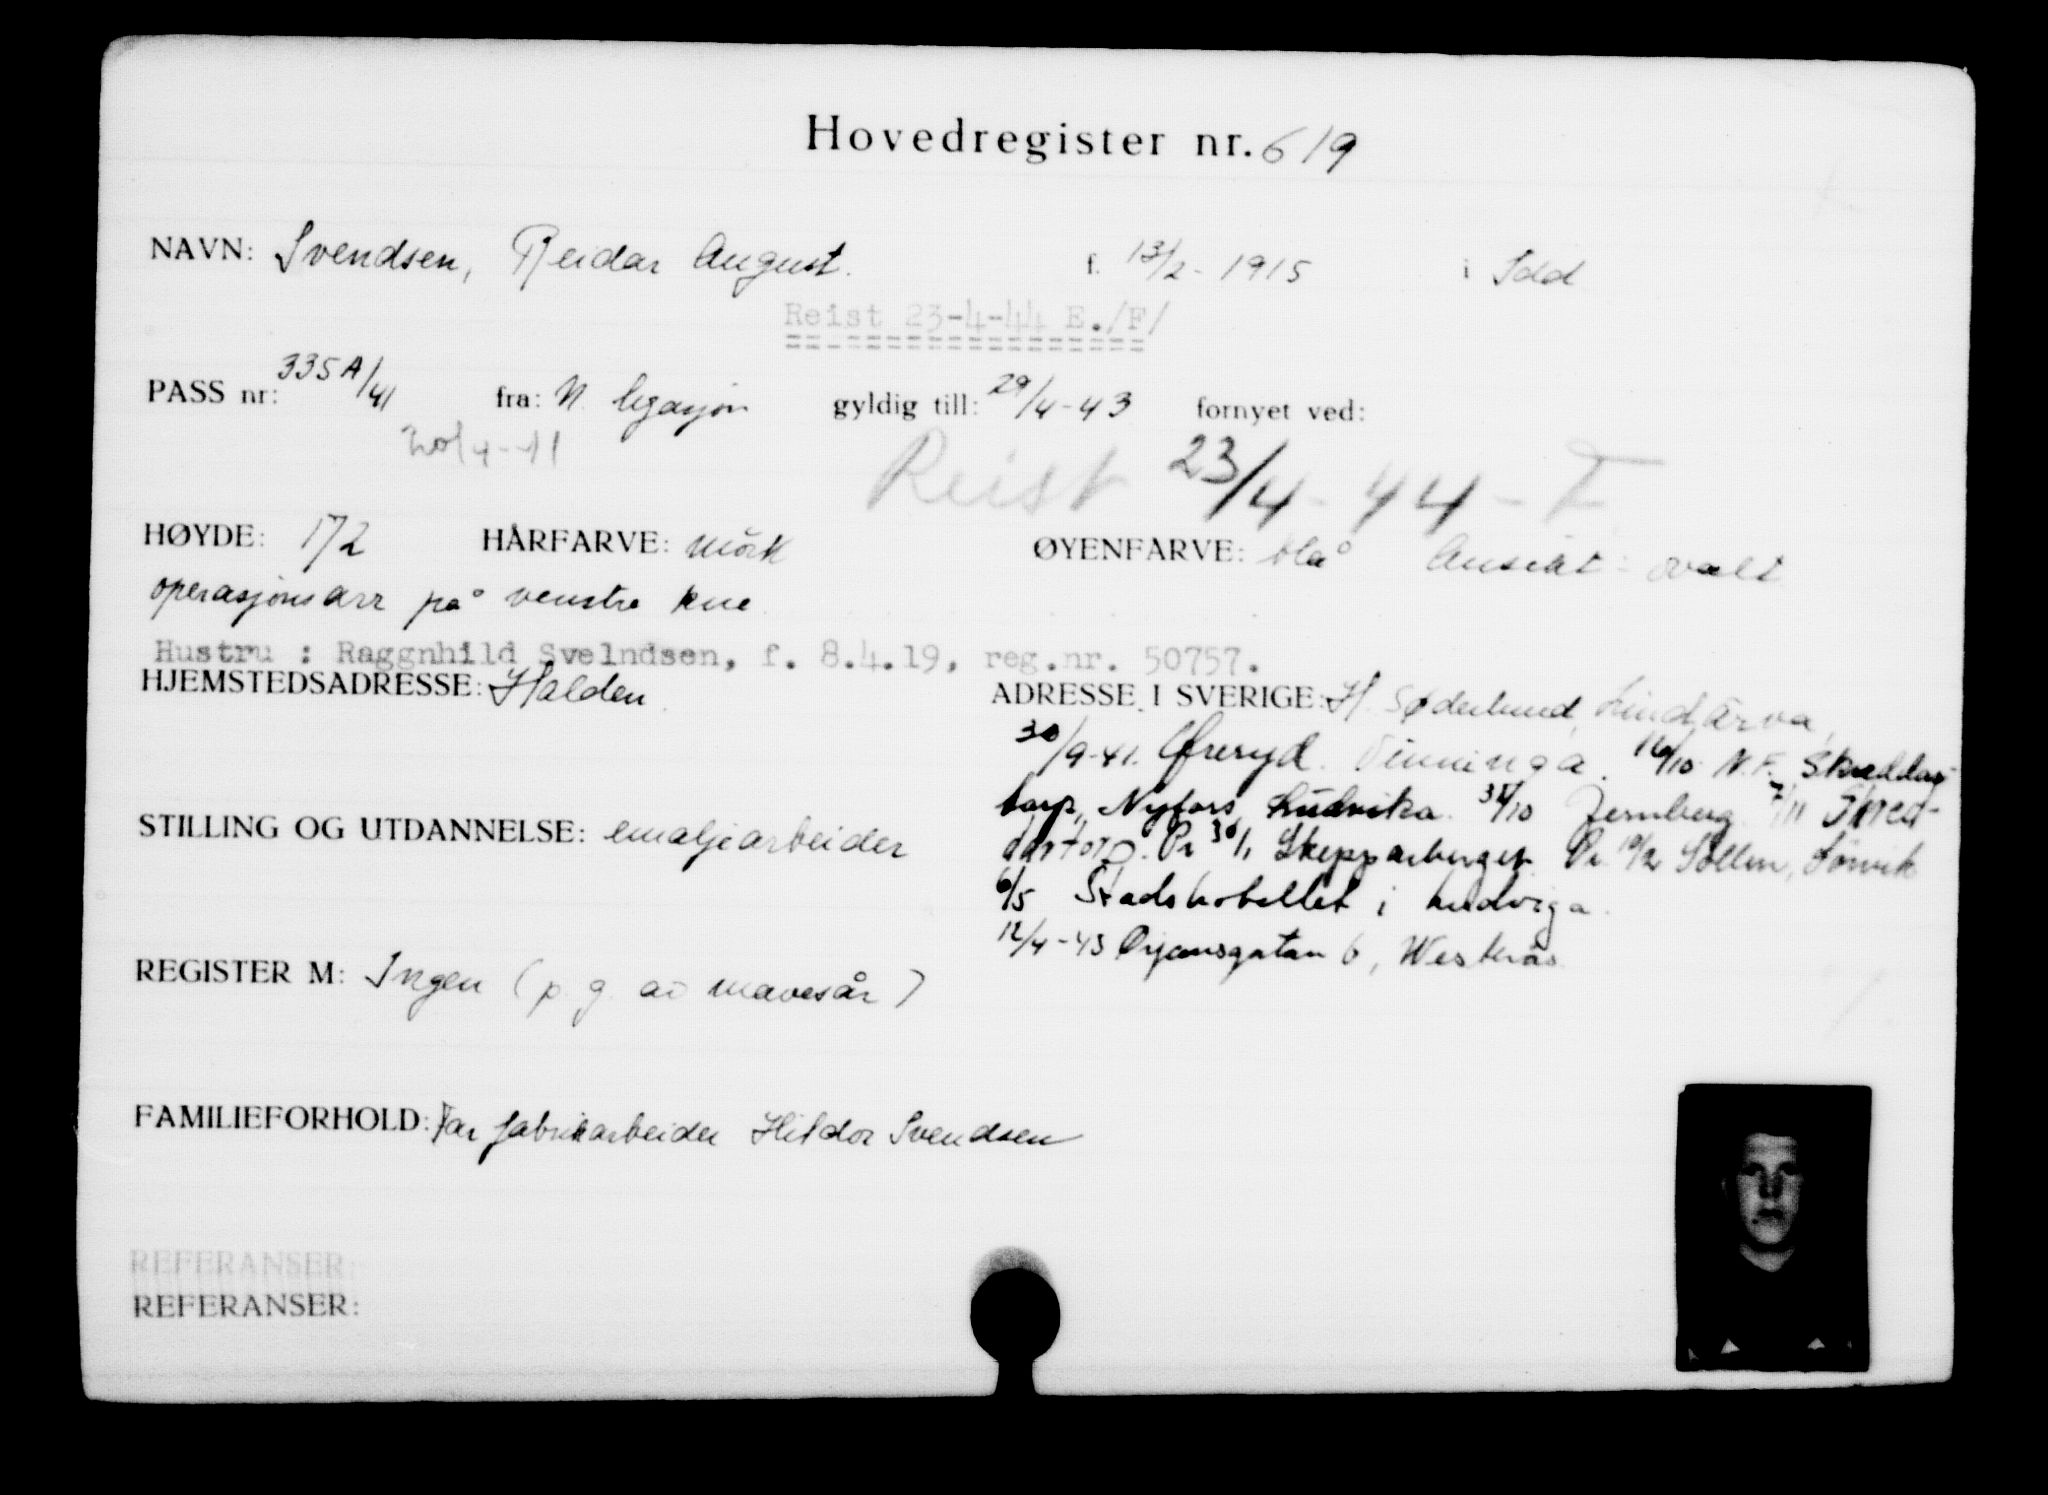 Hovedregister nr. 619
NAVN: Svendsen, Reidar August. f. 13/2 - 1915 i Idd
Reist 23-4-44 E./F/
PASS nr: 335A/41 fra: N. legasjon gyldig till: 29/4-43 fornyet ved:
Reist 23/4-44-F
HØYDE: 172 HÅRFARVE: mörk ØYENFARVE: blå Ansikt: ovalt
operasjonsarr på venstre kne
Hustru : Raggnhild Svelndsen, f. 8.4.19, reg.nr. 50757.
HJEMSTEDSADRESSE: Halden. ADRESSE I SVERIGE: H. Søderlund, Lindärva,
30/9-41. Öreryd. Vinninga. 16/10 N.F. Skreddar-
torp, Nyfors, Ludvika. 31/10 Jernberg. 7/11 Skred-
STILLING OG UTDANNELSE: emaljearbeider dartorp. Pr 30/1 Skepparberget. Pr. 10/2 Sollen, Sörvik
6/5 Stadshotellet i Ludviga.
12/4-43 Ørjansgatan 6, Westerås
REGISTER M: Ingen (p.g. av mavesår)
FAMILIEFORHOLD: Far fabrikarbeider Hildor Svendsen
REFERANSER:
REFERANSER: